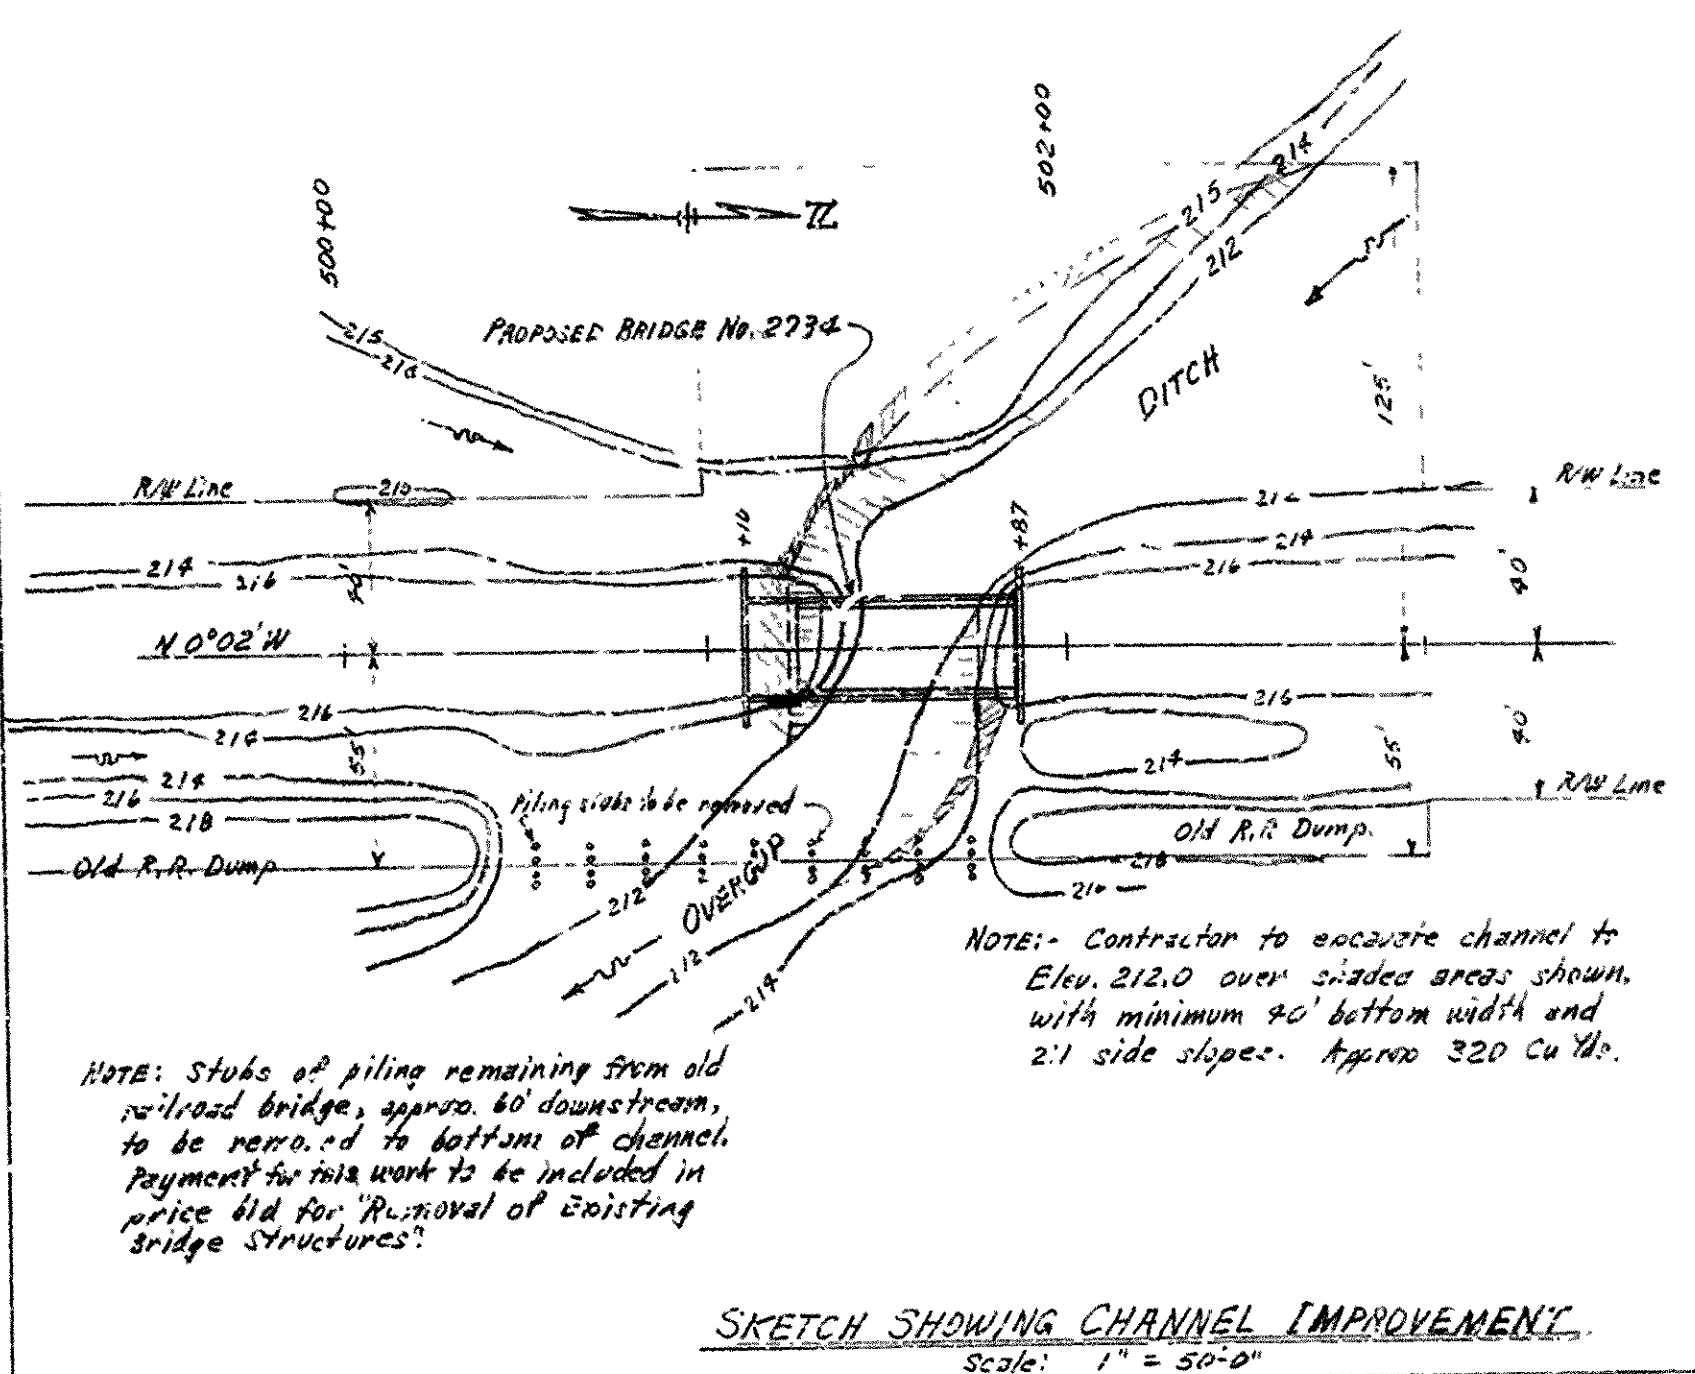 502+00
500+00
214
215
212
PROPOSED BRIDGE No. 2734
215
214
DITCH
125'
R/W Line
210
R/W Line
+16
+87
212
214
216
40'
214
216
40'
N 0°02' W
216
214
216
214
55'
55'
40'
214
216
218
Piling stubs to be removed
R/W Line
Old R.R. Dump
Old R.R. Dump.
218
216
212
OVERCUP
212
214
NOTE:- Contractor to excavate channel to
Elev. 212.0 over shaded areas shown,
with minimum 40' bottom width and
2:1 side slopes. Approx 320 Cu Yds.
NOTE: Stubs of piling remaining from old
railroad bridge, approx. 60' downstream,
to be removed to bottom of channel.
Payment for this work to be included in
price bid for "Removal of Existing
Bridge Structures".
SKETCH SHOWING CHANNEL IMPROVEMENT
Scale: 1" = 50'-0"